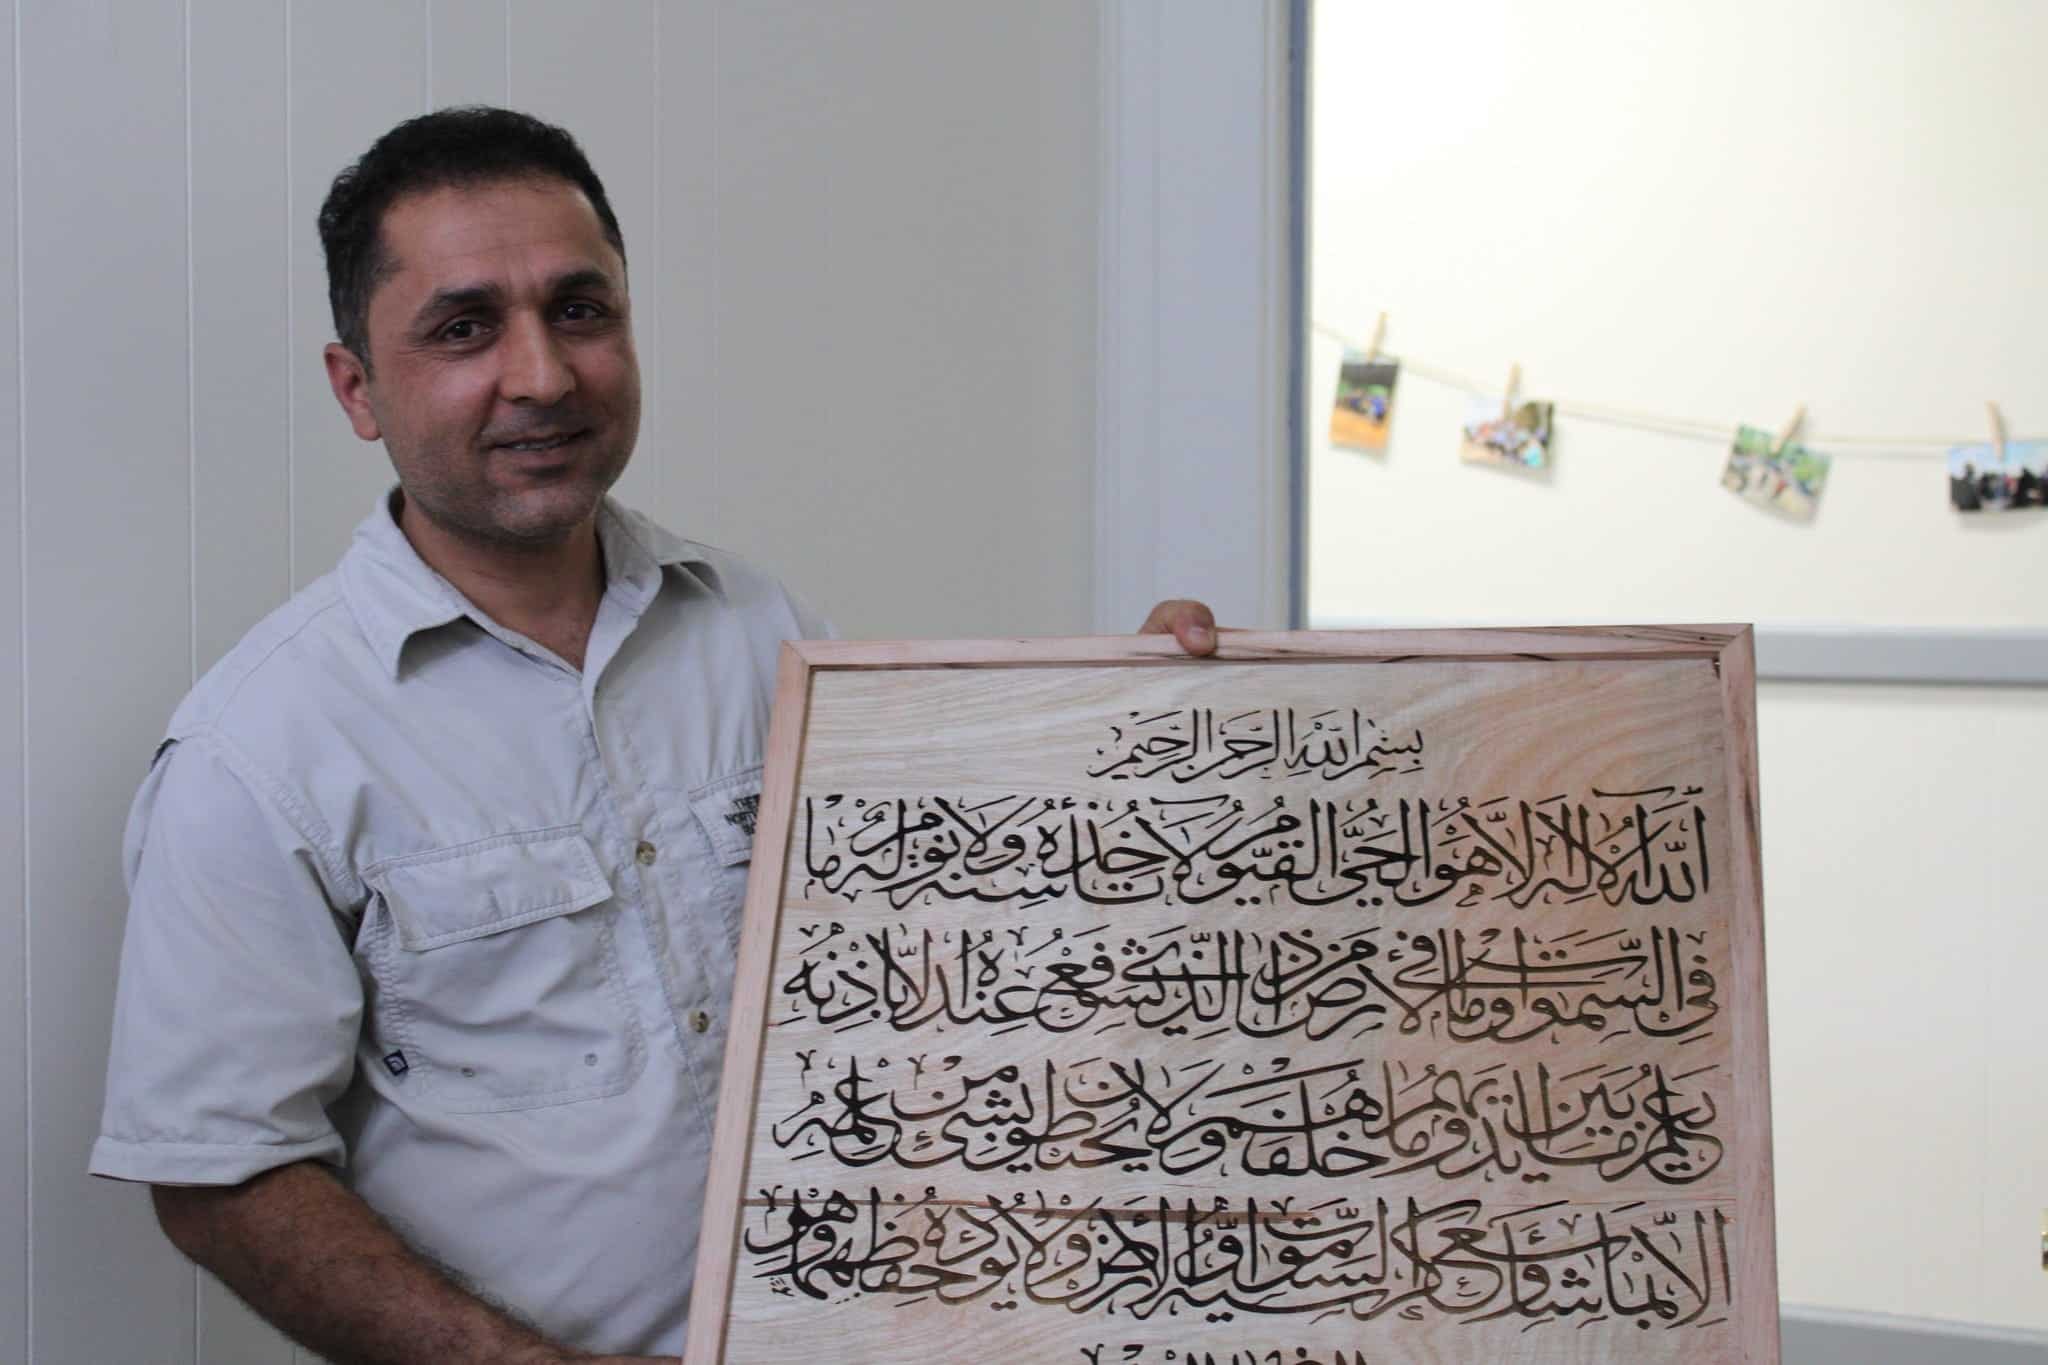 بِسْمِ اللهِ الرَّحْمٰنِ الرَّحِيْمِ
اَللّٰهُ لَا اِلٰهَ اِلَّا هُوَ الْحَيُّ الْقَيُّوْمُ لَا تَأْخُذُهٗ سِنَةٌ وَّلَا نَوْمٌ لَهٗ مَا
فِي السَّمٰوَاتِ وَمَا فِي الْاَرْضِ مَنْ ذَا الَّذِيْ يَشْفَعُ عِنْدَهٗ اِلَّا بِاِذْنِهٖ
يَعْلَمُ مَا بَيْنَ اَيْدِيْهِمْ وَمَا خَلْفَهُمْ وَلَا يُحِيْطُوْنَ بِشَيْءٍ مِّنْ عِلْمِهٖ
اِلَّا بِمَا شَاءَ وَسِعَ كُرْسِيُّهُ السَّمٰوَاتِ وَالْاَرْضَ وَلَا يَئُوْدُهٗ حِفْظُهُمَا وَهُوَ
THE
NORTH